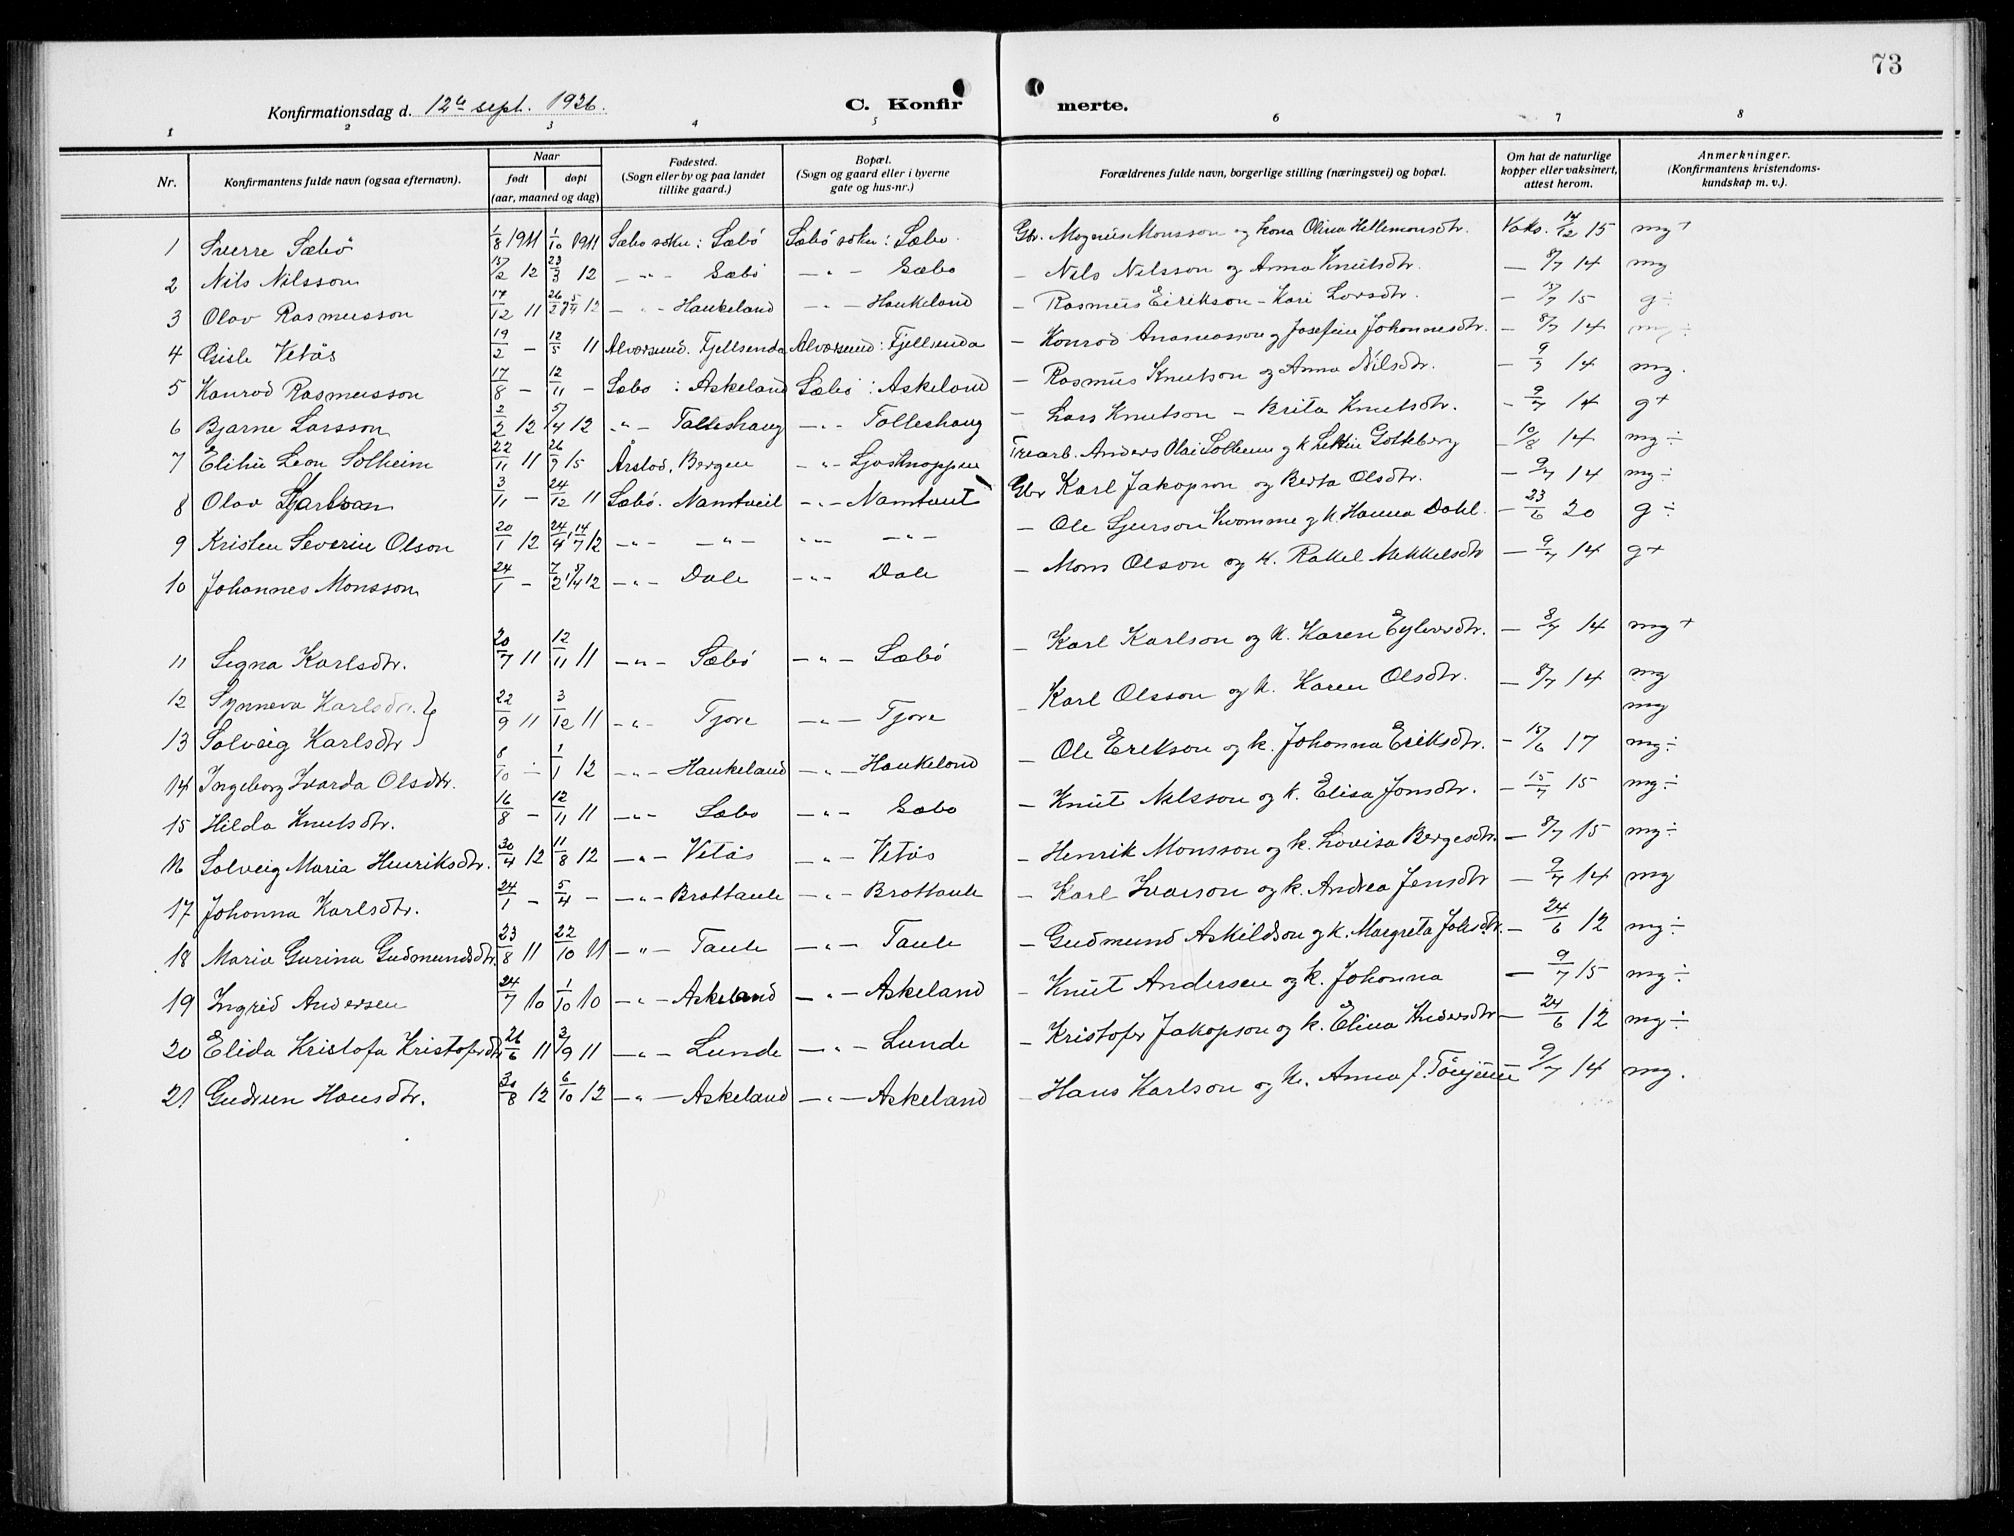 73
Konfirmationsdag d. 12te sept. 1926. C. Konfirmerte.
1 2 3 4 5 6 7 8
Nr. Konfirmantens fulde navn (ogsaa efternavn). Naar født døpt (aar, maaned og dag) Fødested. (Sogn eller by og paa landet tillike gaard.) Bopæl. (Sogn og gaard eller i byerne gate og hus-nr.) Forældrenes fulde navn, borgerlige stilling (næringsvei) og bopæl. Om hat de naturlige kopper eller vaksinert, attest herom. Anmerkninger. (Konfirmantens kristendomskundskap m. v.).
1 Sverre Sæbö 1/8 1911 1/10 1911 Sæbo sokn: Sæbö Sæbö sokn: Sæbo. Gbr. Magnus Monsson og kona Olina Hellemonsdtr. Vaks. 14/12 15 mg+
2 Nils Nilsson 15/2 12 23/3 12 - " - Sæbö - " - Sæbo - Nils Nilsson og Anna Knutsdtr. - 8/7 14 mg
3 Olav Rasmusson 17/12 11 12 - " - Haukeland - " - Haukeland - Rasmus Eirikson - Kari Larsdtr. - 15/7 15 g÷
4 Gisle Vetås 19/2 - 12/5 11 Alversund. Fjellsenda Alversund: Fjellsenda - Konrad Anameasson og Josefine Johannesdtr. - 8/7 14 mg÷
5 Konrad Rasmusson 17/8 - 12/11 - Sæbo : Askeland Sæbö : Askeland - Rasmus Knutson og Anna Nilsdtr. - 9/7 14 mg.
6 Bjarne Larsson 2/2 12 5/4 12 " - Tolleshaug - " - Tolleshaug - Lars Knutson - Brita Knutsdtr. - 9/7 14 g+
7 Elihu Leon Solheim 22/11 11 26/9 15 Årstad, Bergen - " - Ljosknoppen Trearb. Anders Olai Solheim og k Gotteberg - 10/8 14 mg÷
8 Olav 3/11 - 24/12 11 Sæbö. Namtveit - " - Namtveit Gbr Karl Jakopson og Berta Olsdtr. - 9/7 14 mg÷
9 Kristen Severin Olson 20/1 12 24/4, 14/7 12 - " - - " - " - - " - - Ole Sjurson Kvamme og k. Hanna Dahl. - 23/6 20 g÷
10 Johannes Monsson 24/1 - 7/2, 8/4 12 - " - Dale - " - Dale - Mons Olson og k. Rakel Mikkelsdtr - 9/7 14 g+
11 Signa Karlsdtr. 20/7 11 12/11 11 - " - Sæbö - " - Sæbö - Karl Karlson og k. Karen Eylersdtr. - 8/7 14 mg+
12 Synneva Karlsdtr. } 22/9 11 3/12 11 - " - Tjore - " - Tjore - Karl Olsson og k. Karen Olsdtr. - 8/7 14 mg
13 Solveig Karlsdtr } mg
14 Ingeborg Ivarda Olsdtr. 8/10 - 1/1 12 - " - Haukeland - " - Haukeland - Ole Erikson og k. Johanna Eriksdtr. - 15/6 17 mg÷
15 Hilda Knutsdtr. 16/8 - 12/11 11 - " - Sæbo - " - Sæbo - Knut Nilsson og k. Elisa Jonsdtr. - 15/7 15 mg÷
16 Solveig Maria Henriksdtr. 30/4 12 11/8 12 - " - Vetås - " - Vetås - Henrik Monsson og k. Lovisa Bergesdtr. - 8/7 15 mg÷
17 Johanna Karlsdtr. 24/1 - 5/4 - - " - Brattaule - " - Brattaule - Karl Ivarson og k. Andrea Jensdtr - 9/7 14 mg
18 Maria Gurina Gudmundsdtr. 23/8 11 22/10 11 - " - Taule - " - Taule - Gudmund Askildson og k. Margreta Johsdtr. - 24/6 12 mg÷
19 Ingrid Andersen 24/7 10 1/10 10 - " - Askeland - " - Askeland - Knut Andersen og k. Johanna - 9/7 15 mg÷
20 Elida Kristofa Kristoferdtr 26/6 11 3/9 11 - " - Lunde - " - Lunde - Kristofer Jakopson og k. Elina Andersdtr - 24/6 12 mg÷
21 Gudrun Hansdtr. 30/8 12 6/10 12 - " - Askeland - " - Askeland - Hans Karlson og k. Anna f. - 9/7 14 mg.